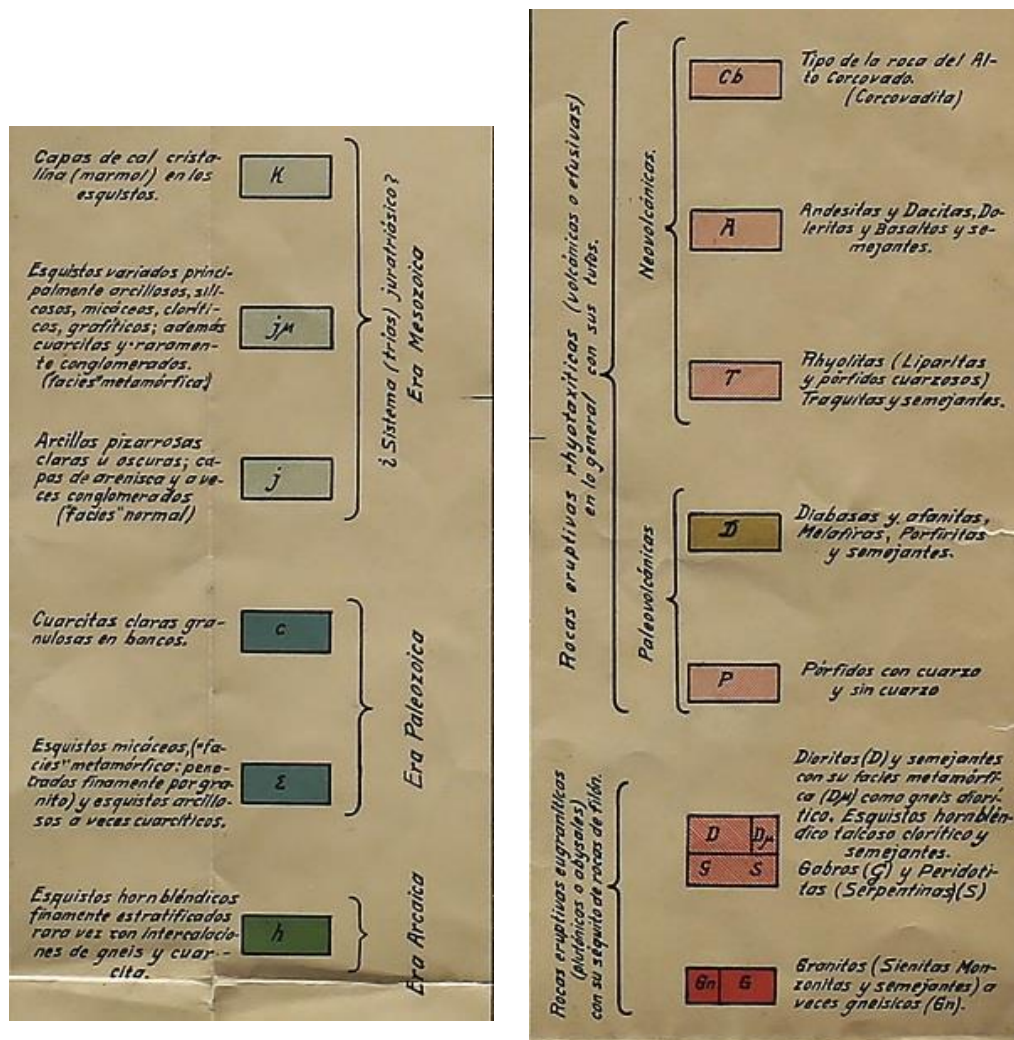 Capas de cal crista-
lina (marmol) en los
esquistos.
K
Esquistos variados princi-
palmente arcillosos, sili-
cosos, micáceos, cloríti-
cos, grafíticos; además
cuarcitas y raramen-
te conglomerados.
("facies" metamórfica)
jμ
Arcillas pizarrosas
claras u oscuras; ca-
pas de arenisca y a ve-
ces conglomerados
("facies" normal)
j
¿Sistema (trias) juratriásico?
Era Mesozoica
Cuarcitas claras gra-
nulosas en bancos.
c
Esquistos micáceos, ("fa-
cies" metamórfica: pene-
trados finamente por gra-
nito) y esquistos arcillo-
sos a veces cuarcíticos.
Σ
Era Paleozoica
Esquistos hornbléndicos
finamente estratificados
rara vez con intercalacio-
nes de gneis y cuar-
cita.
h
Era Arcaica
Rocas eruptivas rhyotaxíticas (volcánicas o efusivas)
en lo general con sus tufos.
Neovolcánicas.
Cb
Tipo de la roca del Al-
to Corcovado.
(Corcovadita)
A
Andesitas y Dacitas, Do-
leritas y Basaltos y se-
mejantes.
T
Rhyolitas (Liparitas
y pórfidos cuarzosos)
Traquitas y semejantes.
Paleovolcánicas
D
Diabasas y afanitas,
Melafiras, Porfiritas
y semejantes.
P
Pórfidos con cuarzo
y sin cuarzo
Rocas eruptivas eugraníticas
(plutónicas o abysales)
con su sequito de rocas de filón.
D Dμ
G S
Dioritas (D) y semejantes
con su facies metamórfi-
ca (Dμ) como gneis diorí-
tico. Esquistos hornblén-
dico talcoso clorítico y
semejantes.
Gabros (G) y Peridoti-
tas (Serpentinas)(S)
Gn G
Granitos (Sienitas Mon-
zonitas y semejantes) a
veces gneisicos (Gn).